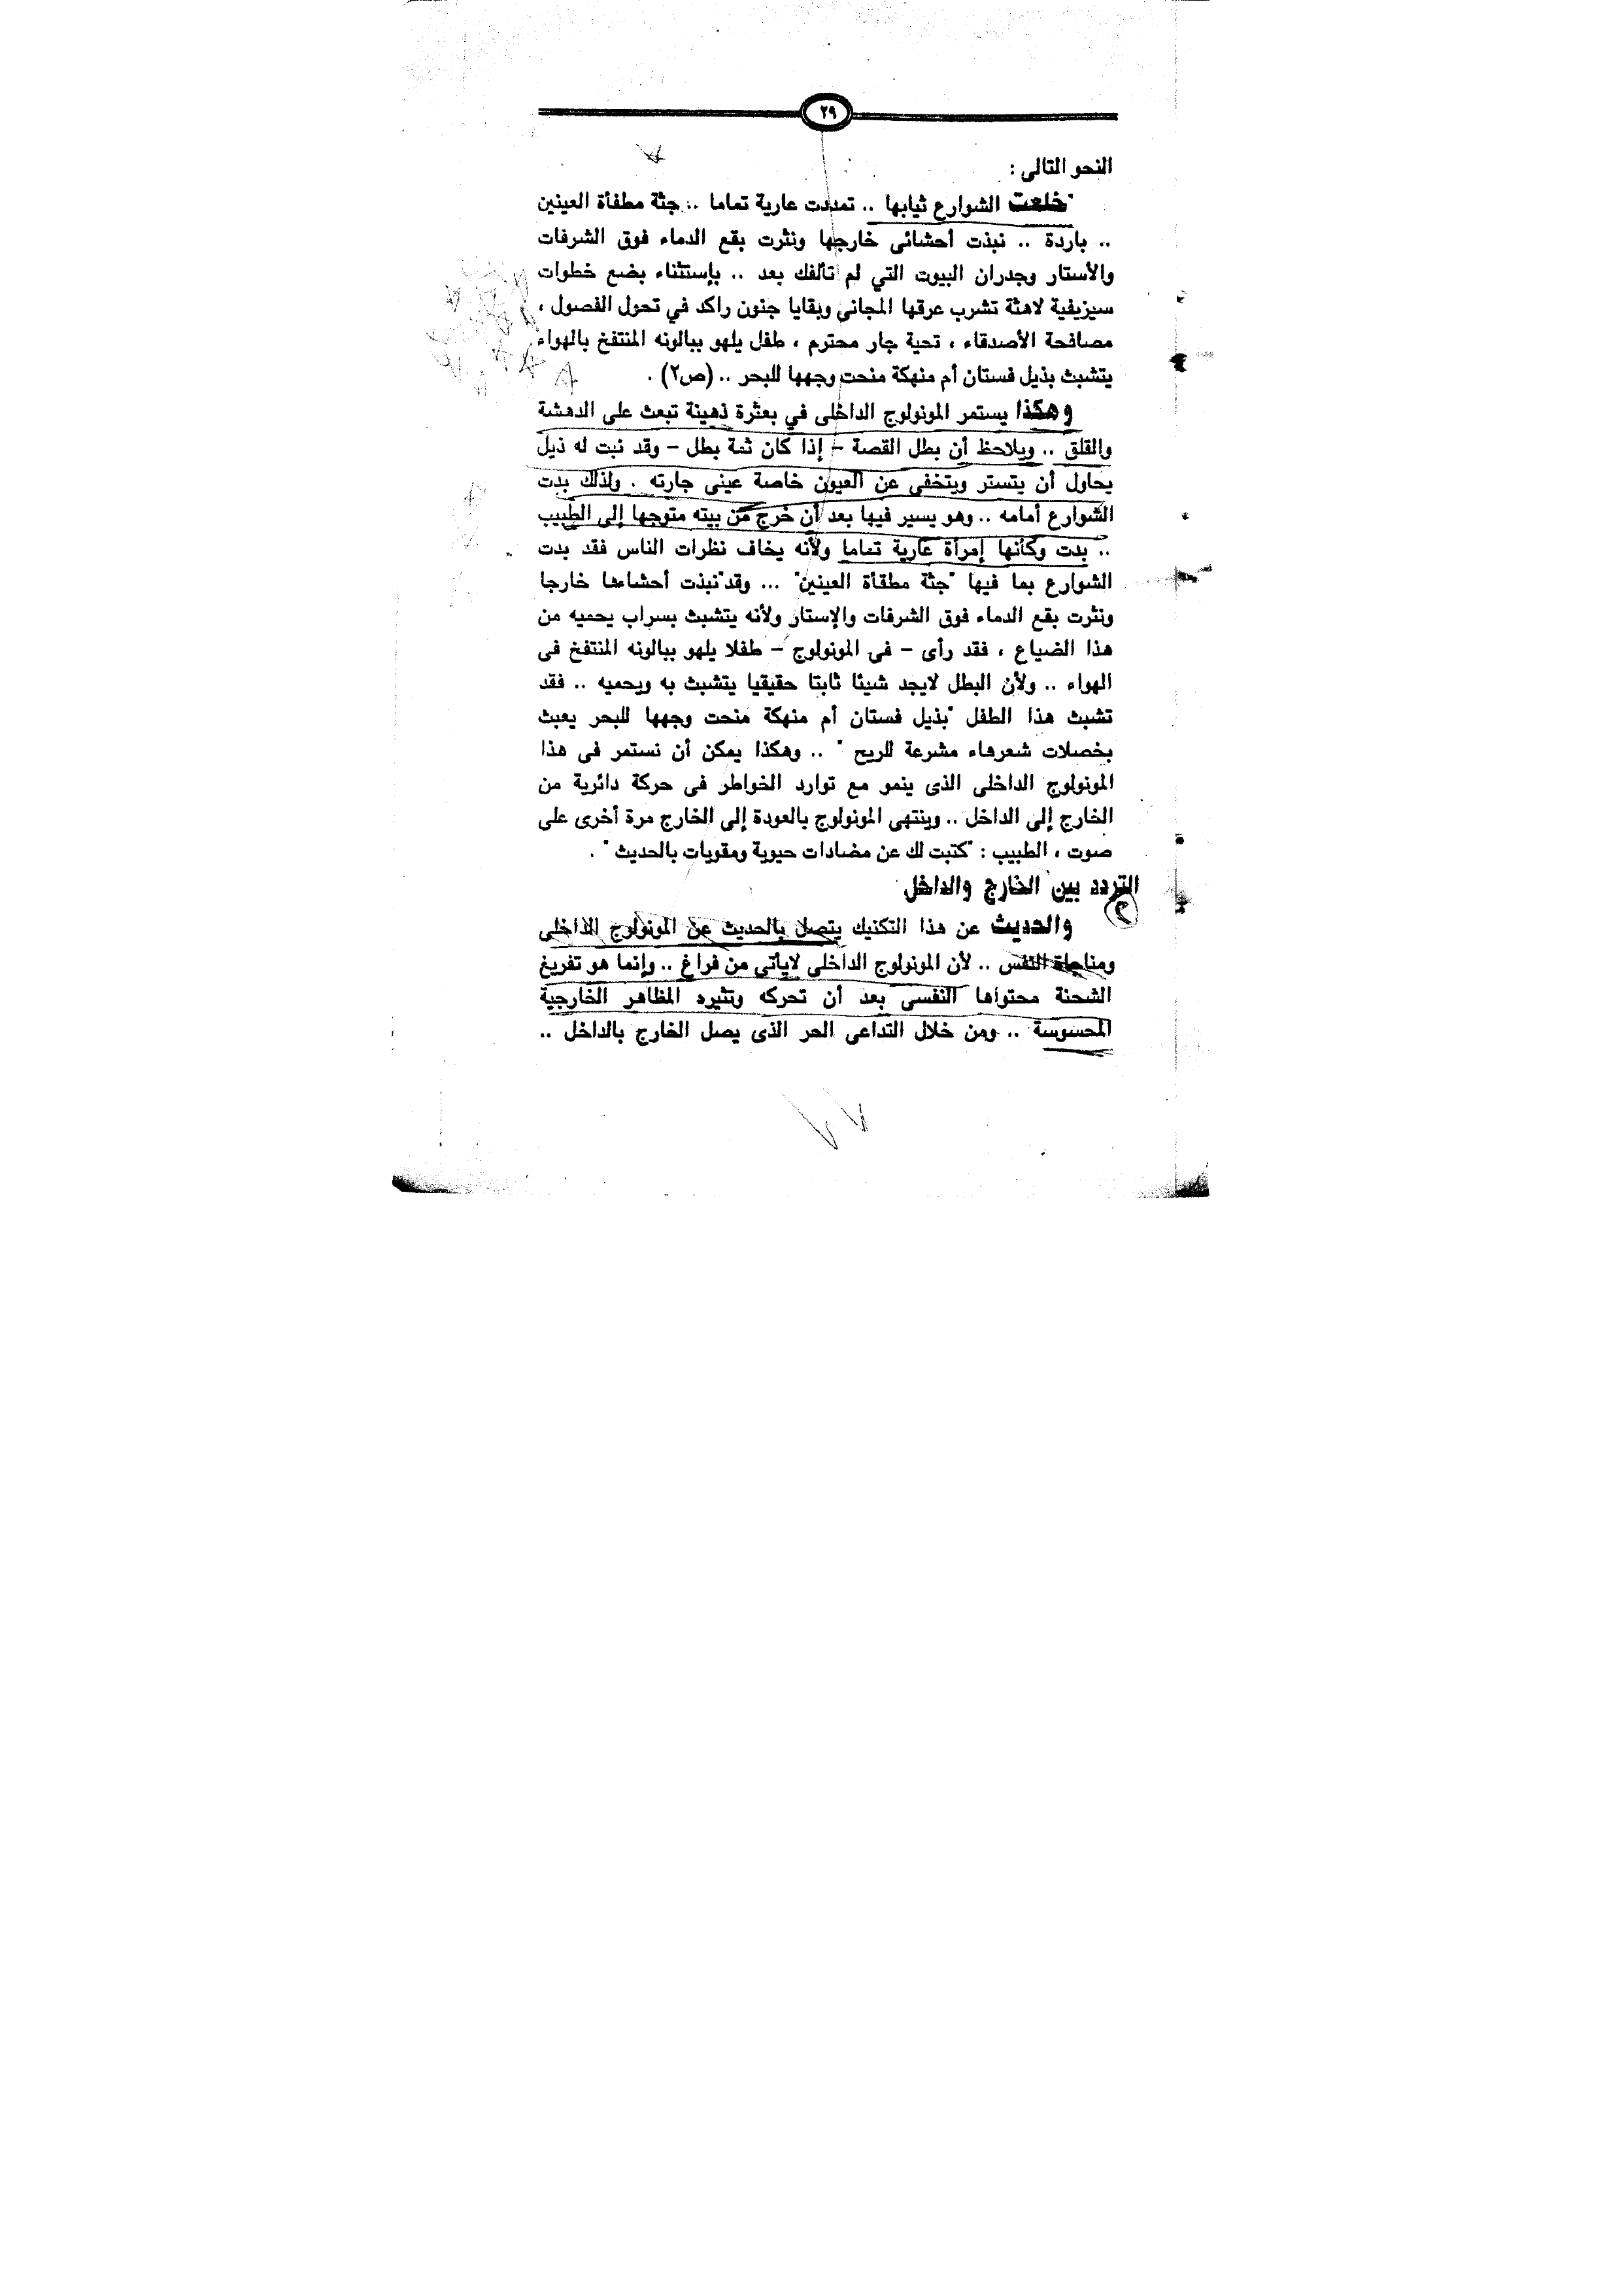 ٢٩
النحو التالى :
"خلعت الشوارع ثيابها .. تمددت عارية تماما .. جثة مطفأة العينين
.. باردة .. نبذت أحشائى خارجها ونثرت بقع الدماء فوق الشرفات
والأستار وجدران البيوت التي لم تألفك بعد .. بإستثناء بضع خطوات
سيزيفية لاهثة تشرب عرقها المجانى وبقايا جنون راكد في تحول الفصول ،
مصافحة الأصدقاء ، تحية جار محترم ، طفل يلهو ببالونه المنتفخ بالهواء
يتشبث بذيل فستان أم منهكة منحت وجهها للبحر .. (ص٢) .
وهكذا يستمر المونولوج الداخلى في بعثرة ذهينة تبعث على الدهشة
والقلق .. ويلاحظ أن بطل القصة – إذا كان ثمة بطل – وقد نبت له ذيل
يحاول أن يتستر ويتخفى عن العيون خاصة عينى جارته . ولذلك بدت
الشوارع أمامه .. وهو يسير فيها بعد أن خرج من بيته متوجها إلى الطبيب
.. بدت وكأنها إمرأة عارية تماما ولأنه يخاف نظرات الناس فقد بدت
الشوارع بما فيها "جثة مطفأة العينين" ... وقد"نبذت أحشاءها خارجا
ونثرت بقع الدماء فوق الشرفات والإستار ولأنه يتشبث بسراب يحميه من
هذا الضياع ، فقد رأى – فى المونولوج – طفلا يلهو ببالونه المنتفخ فى
الهواء .. ولأن البطل لايجد شيئا ثابتا حقيقيا يتشبث به ويحميه .. فقد
تشبث هذا الطفل "بذيل فستان أم منهكة منحت وجهها للبحر يعبث
بخصلات شعرهاء مشرعة للريح " .. وهكذا يمكن أن نستمر فى هذا
المونولوج الداخلى الذى ينمو مع توارد الخواطر فى حركة دائرية من
الخارج إلى الداخل .. وينتهى المونولوج بالعودة إلى الخارج مرة أخرى على
صوت ، الطبيب : "كتبت لك عن مضادات حيوية ومقويات بالحديث " .
التردد بين الخارج والداخل
والحديث عن هذا التكنيك يتصل بالحديث عن المونولوج الداخلى
ومناجاة النفس .. لأن المونولوج الداخلى لايأتى من فراغ .. وإنما هو تفريغ
الشحنة محتواها النفسى بعد أن تحركه وتثيره المظاهر الخارجية
المحسوسة .. ومن خلال التداعى الحر الذى يصل الخارج بالداخل ..